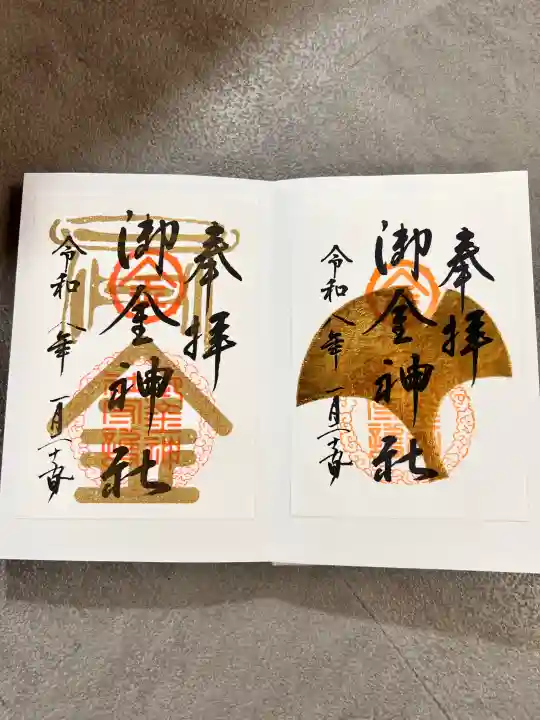 奉拝
御金神社
令和八年 一月二十五日
奉拝
御金神社
令和八年 一月二十五日